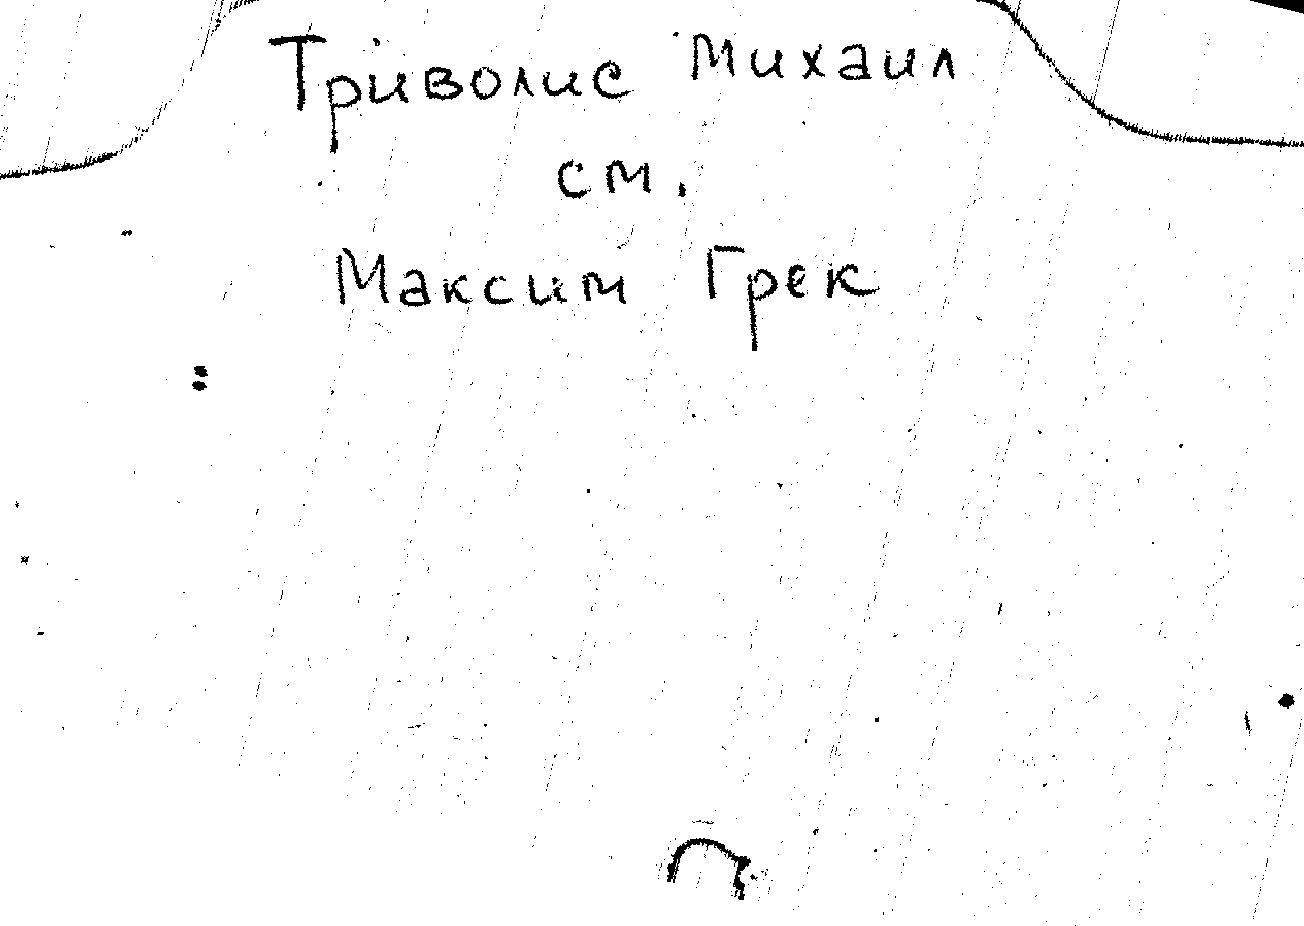 Триволис Михаил
см.
Максим Грек